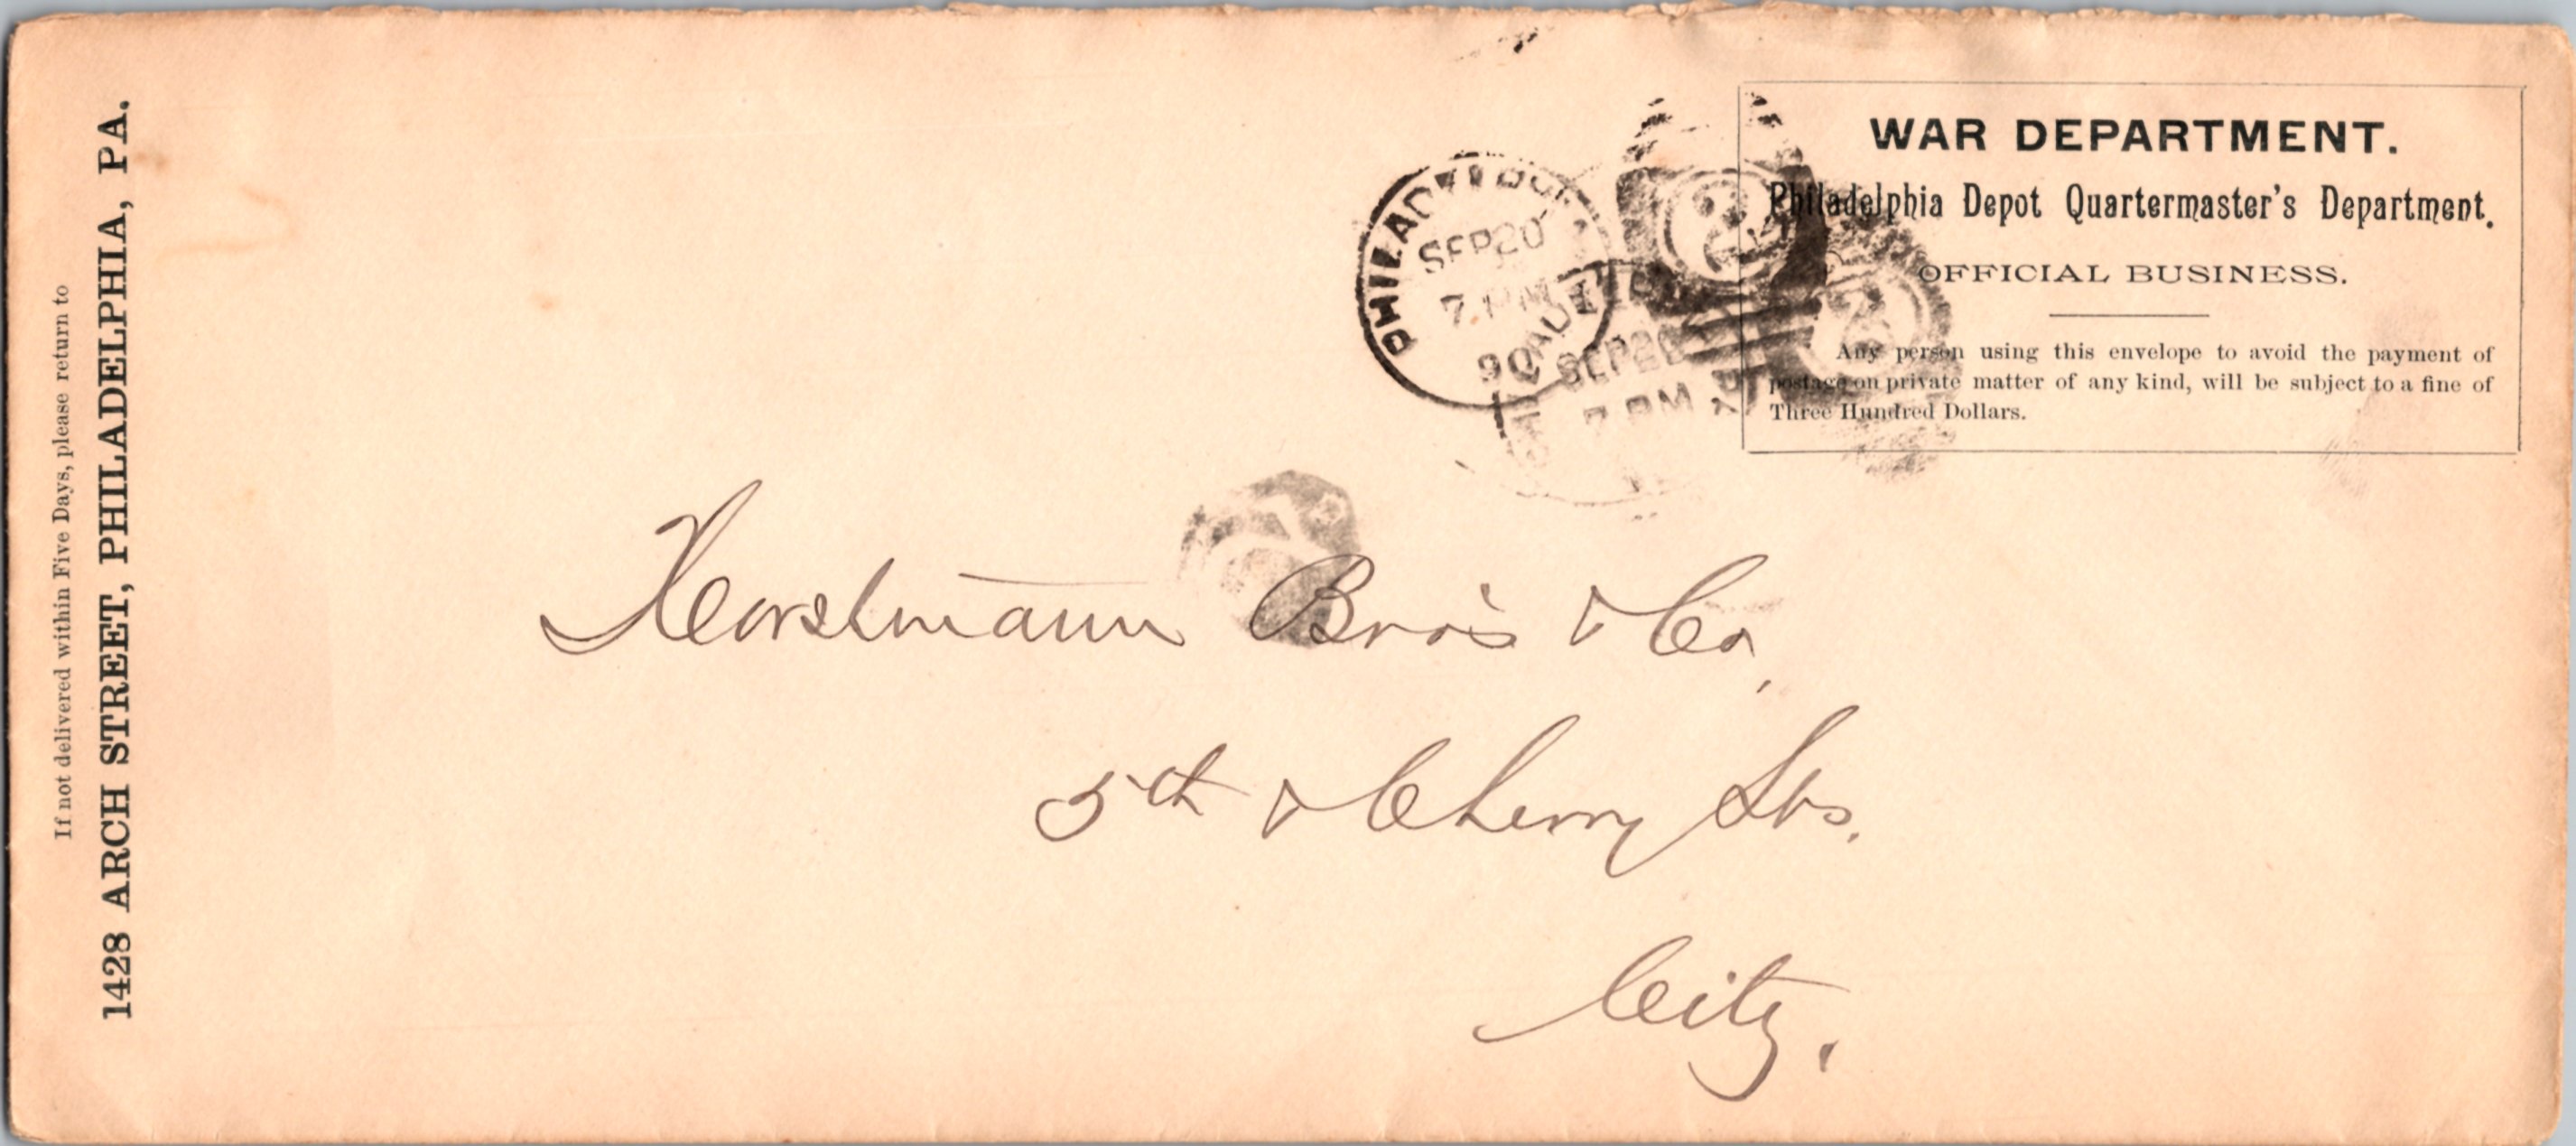 If not delivered within Five Days, please return to
1428 ARCH STREET, PHILADELPHIA, PA.
WAR DEPARTMENT.
Philadelphia Depot Quartermaster's Department.
OFFICIAL BUSINESS.
Any person using this envelope to avoid the payment of
postage on private matter of any kind, will be subject to a fine of
Three Hundred Dollars.
PHILADELPHIA
SEP 20
7 PM
90
SEP 20
7 PM
2
2
Horstmann Bro's & Co,
5th & Cherry Sts.
City.